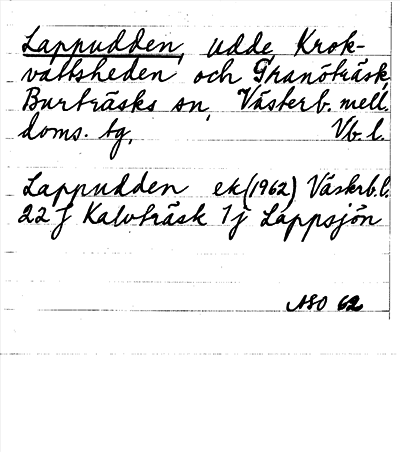 Lappudden, udde, Krok-
vattsheden och Granöträsk,
Burträsks sn, Västerb. mell.
doms. tg, Vb. l.
Lappudden ek (1962) Västerb.l.
22 J Kalvträsk 1j Lappsjön
ASO 62